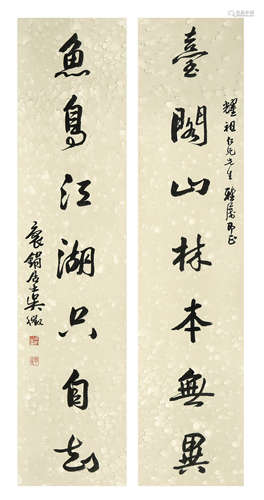 臺閣山林本無異
耀祖仁兄先生雅屬即正
魚鳥江湖只自知
袞鋗居士吳徵